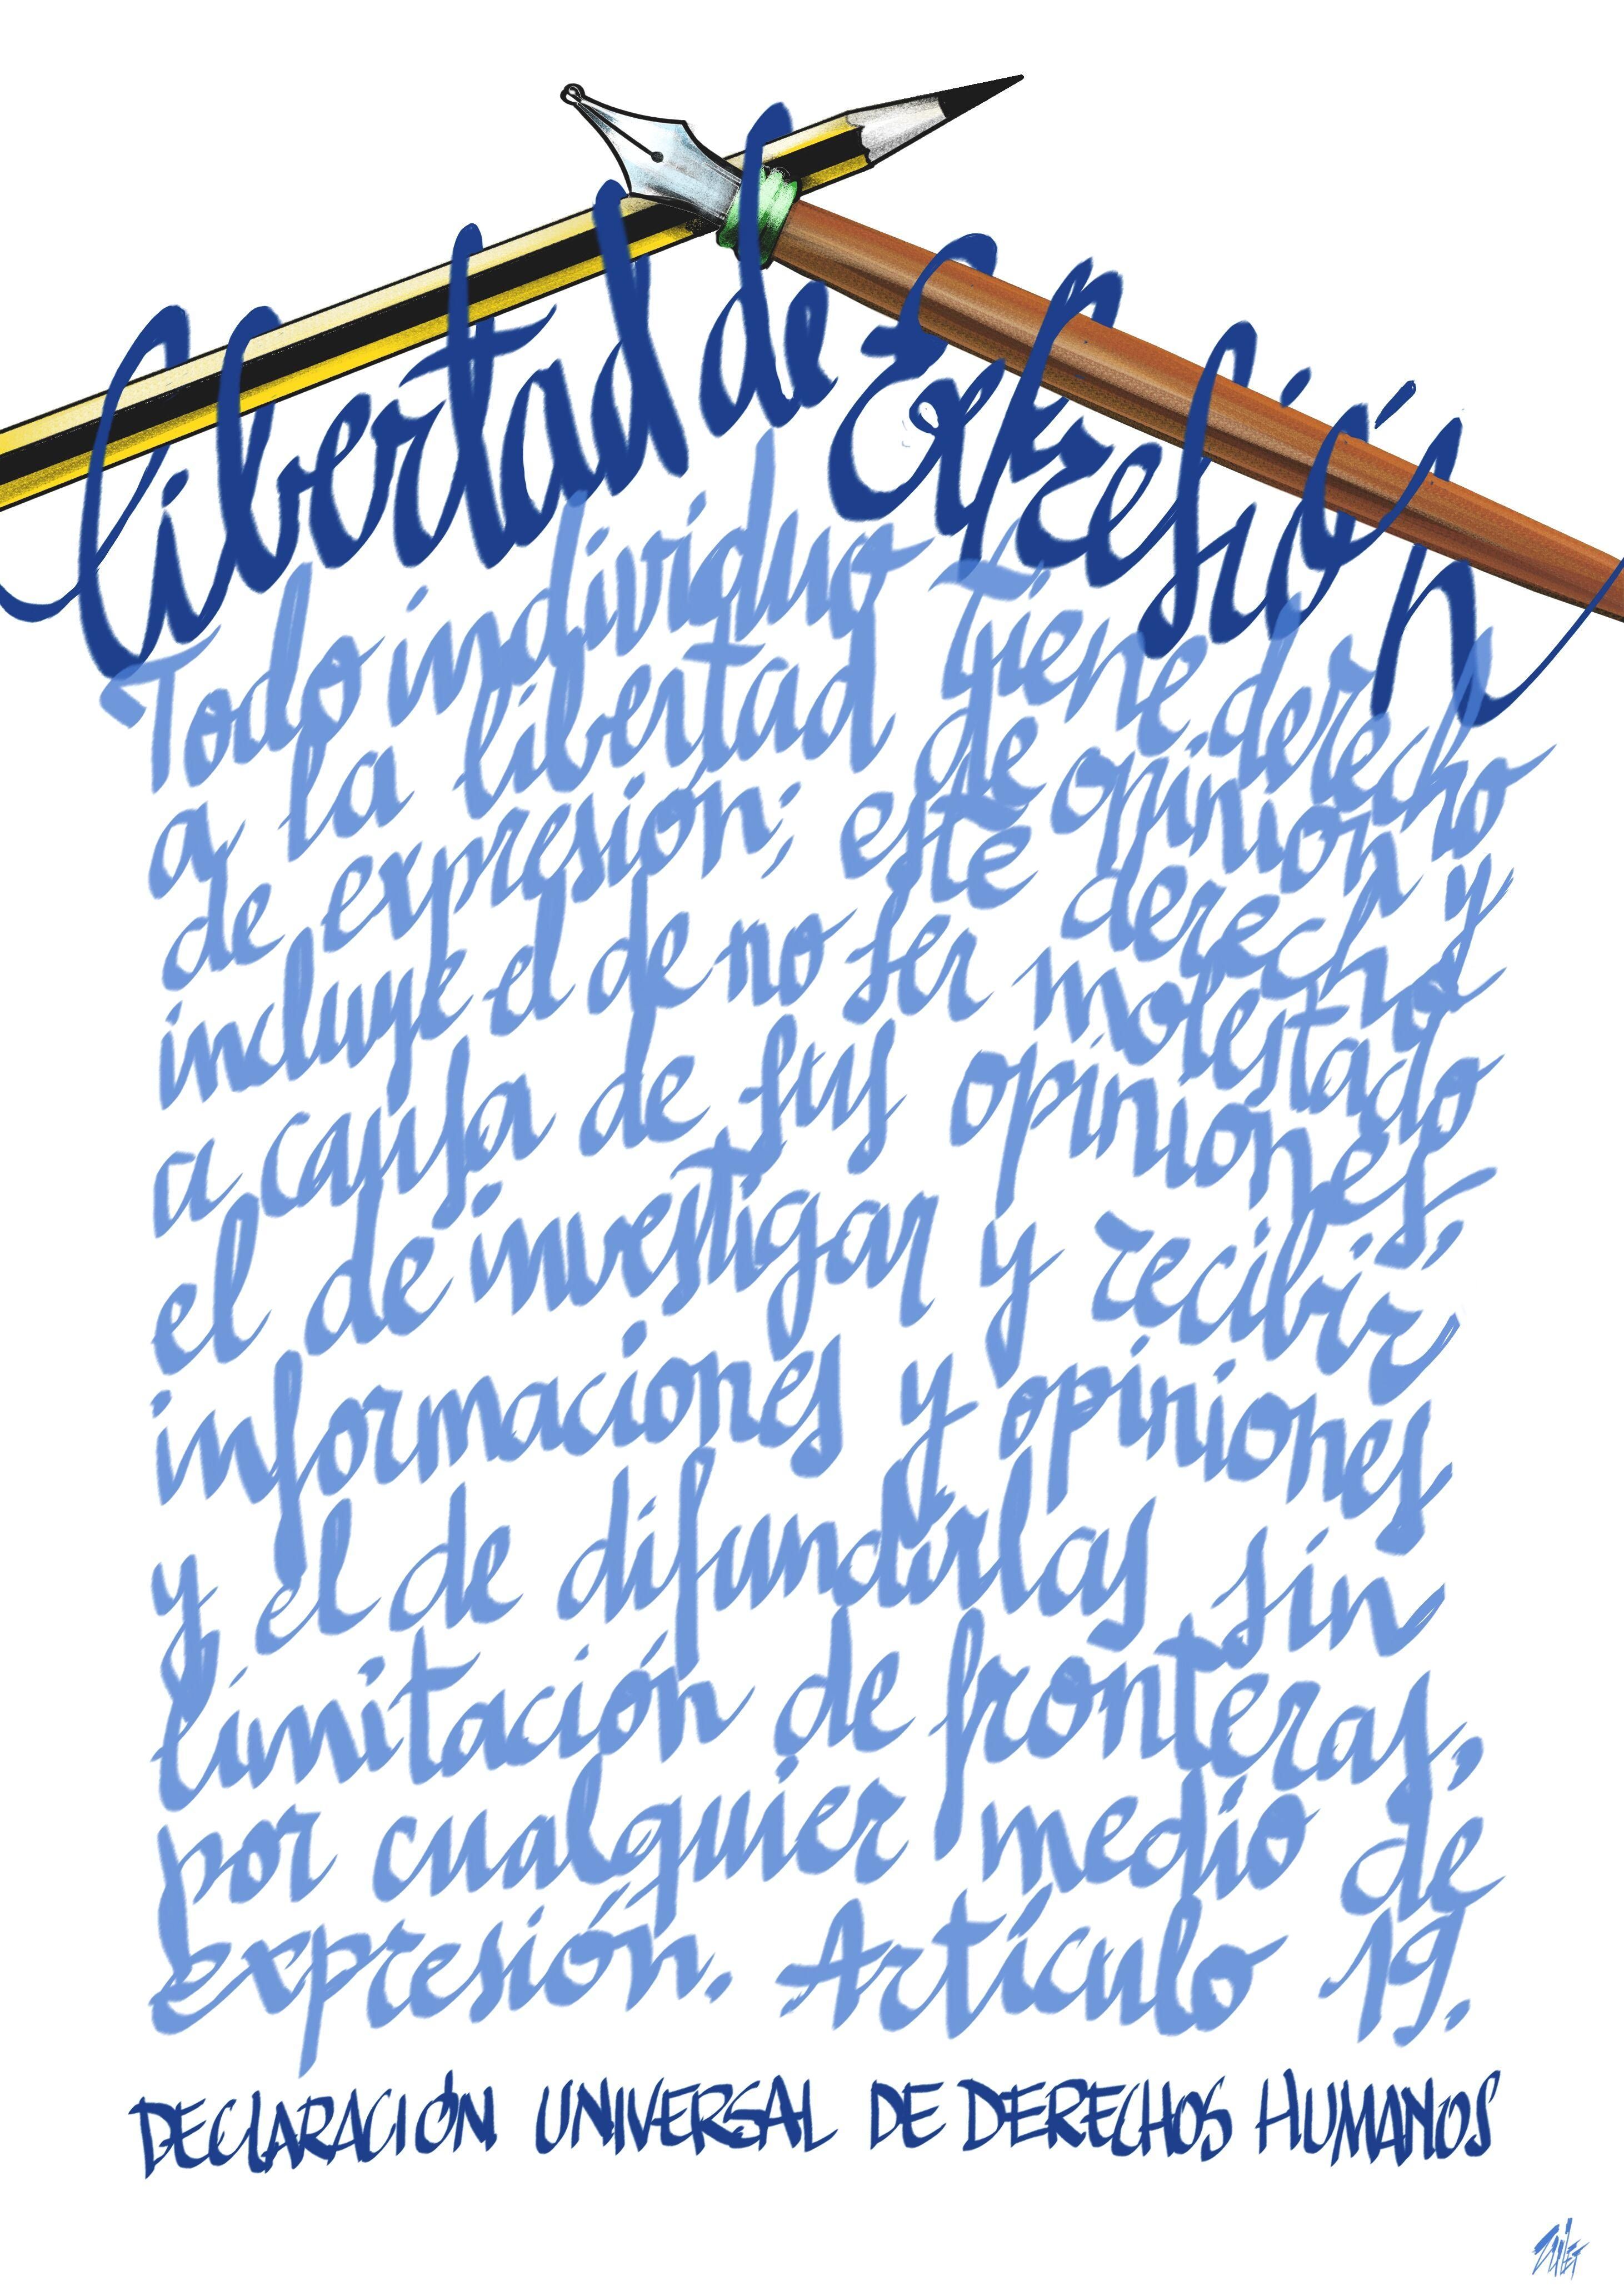 Libertad de Expresión
Todo individuo tiene derecho
a la libertad de opinión y
de expresión; este derecho
incluye el de no ser molestado
a causa de sus opiniones,
el de investigar y recibir
informaciones y opiniones
y el de difundirlas sin
limitación de fronteras,
por cualquier medio de
expresión. Artículo 19.
DECLARACIÓN UNIVERSAL DE DERECHOS HUMANOS